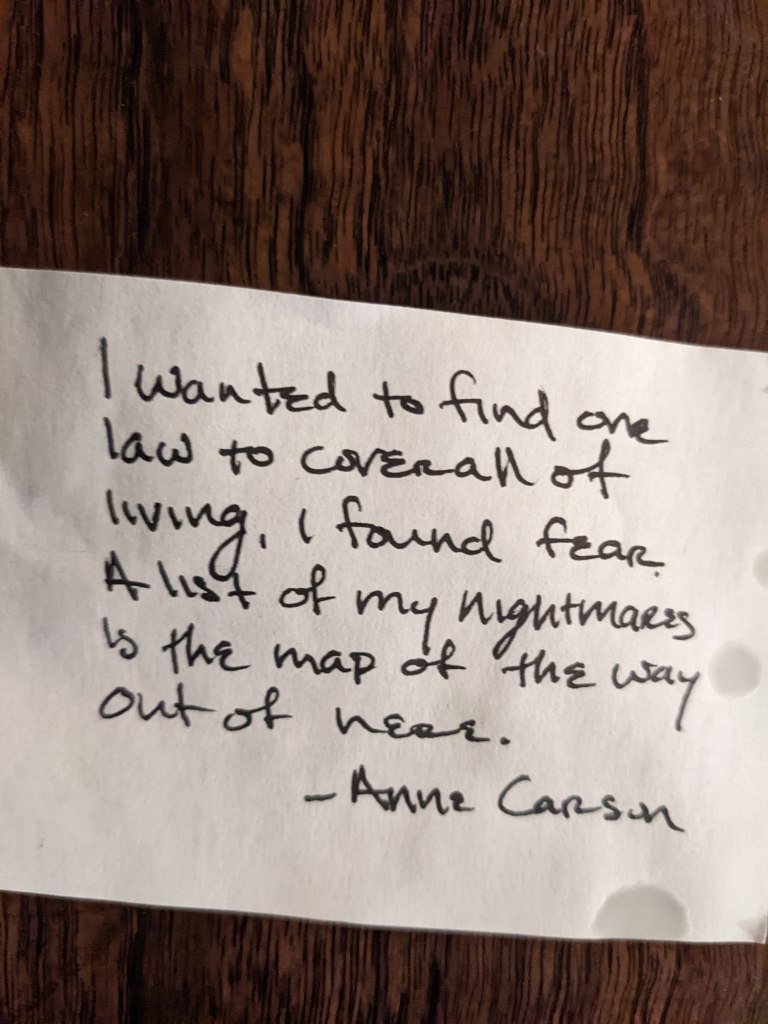 I wanted to find one
law to cover all of
living, I found fear.
A list of my nightmares
is the map of the way
out of here.
– Anne Carson